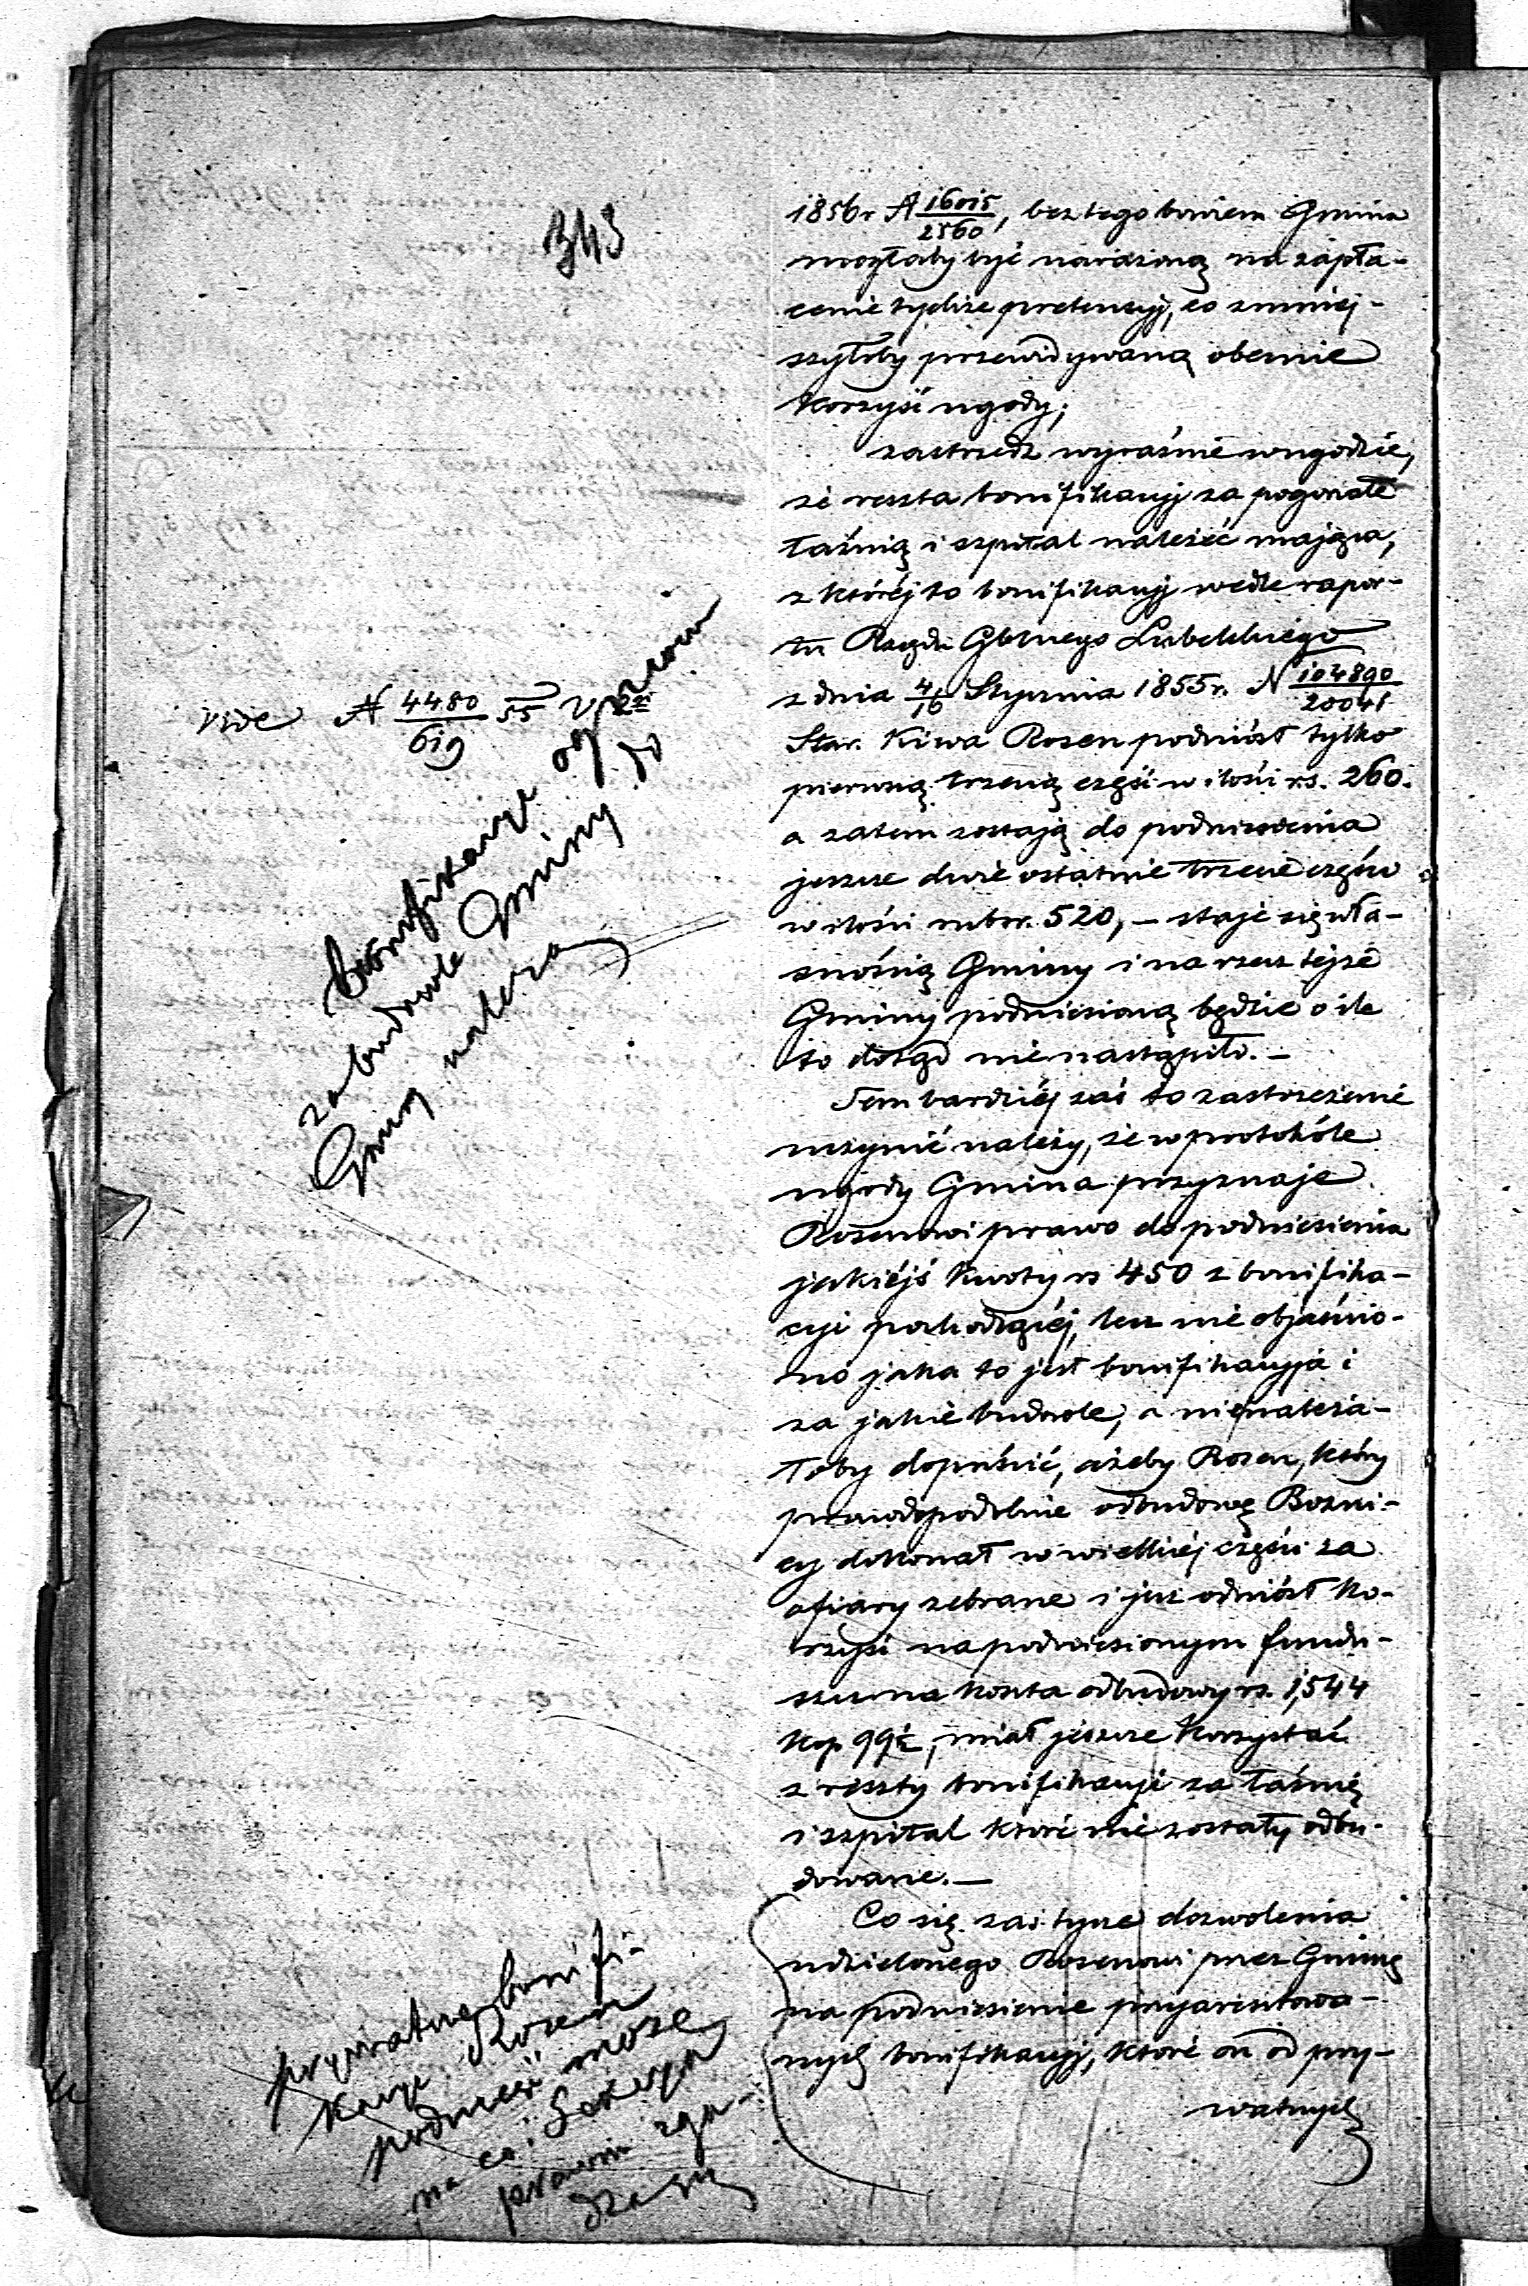 343
1856 r N 16015/2560, bez tego bowiem Gmina
mogłaby być narażoną na zapła-
cenie tychże pretensyj, co zmniej-
szyłoby przewidywaną obecnie
korzyść ugody;
zastrzedz wyraźnie w ugodzie,
że reszta bonifikacyj za pogorzałe
łaźnią i szpital należeć mająca,
z któréj to bonifikacyj wedle rapor-
tu Rządu Gbrnego Lubelskiego
z dnia 4/16 Stycznia 1855 r. N 104890/20041
Star. Kiwa Rosen podniósł tylko
pierwszą trzecią część w ilości rs. 260.
a zatem zostają do podniesienia
jeszcze dwie ostatnie trzecie części
w ilości rubsr. 520, – staje się wła-
snością Gminy i na rzecz tejże
Gminy podniesioną będzie o ile
to dotąd nie nastąpiło. –
Tem bardziéj zaś to zastrzeżenie
uczynić należy, że w protokóle
ugody Gmina przyznaje
Rosenowi prawo do podniesienia
jakiéjś kwoty rs 450 z bonifika-
cyi pochodzącéj, lecz nie objaśnio-
no jaka to jest bonifikacyja i
za jakie budowle, a nienależa-
łoby dopuścić, ażeby Rosen, który
prawdopodobnie odbudowę Bożni-
cy dokonał w wielkiéj części za
ofiary zebrane i już odniósł ko-
rzyść na podniesionym fundu-
szu na koszta odbudowy rs. 1,544
kop 99½, miał jeszcze korzystać
z reszty bonifikacyi za łaźnię
i szpital które nie zostały odbu-
dowane. –
Co się zaś tyczy dozwolenia
udzielonego Rosenowi przez Gminę
na podniesienie przyaresztowa-
nych bonifikacyj, które on od pry-
watnych
vide N 4480/619 55 V
Bonifikacye
za budowle Gminy do
Gminy należą
prywatne bonifi-
kacye Rosen
podnieść może
na co i Sekcya
prawna zga-
dza się